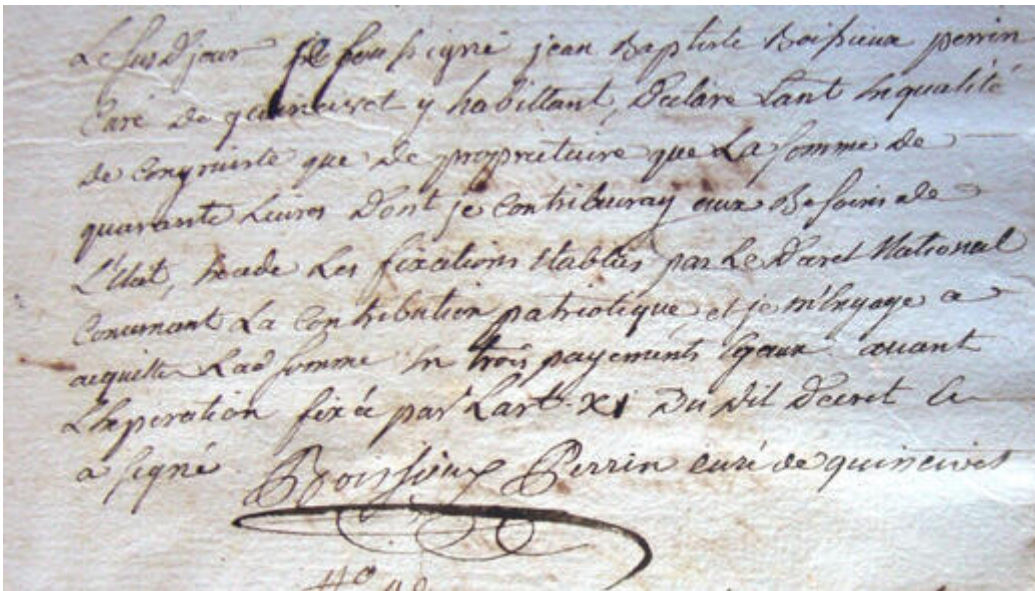 Le susd jour je soussigné jean Baptiste Boissieux perrin
Curé de quincivet y habittant, Declare tant En qualité
de Congruiste que de proprietaire que La somme de
quarante Livres Dont je Contribueray aux Besoins de
L'Etat, Exade Les fixations Etablies par Le Decret National
Concernant La Contribution patriotique et je m'Engage a
acquitter Lad somme En trois payements Egaux avant
L'Expiration fixée par L'art. XI Du dit Decret Et
a signé Boissieux Perrin curé de quincivet